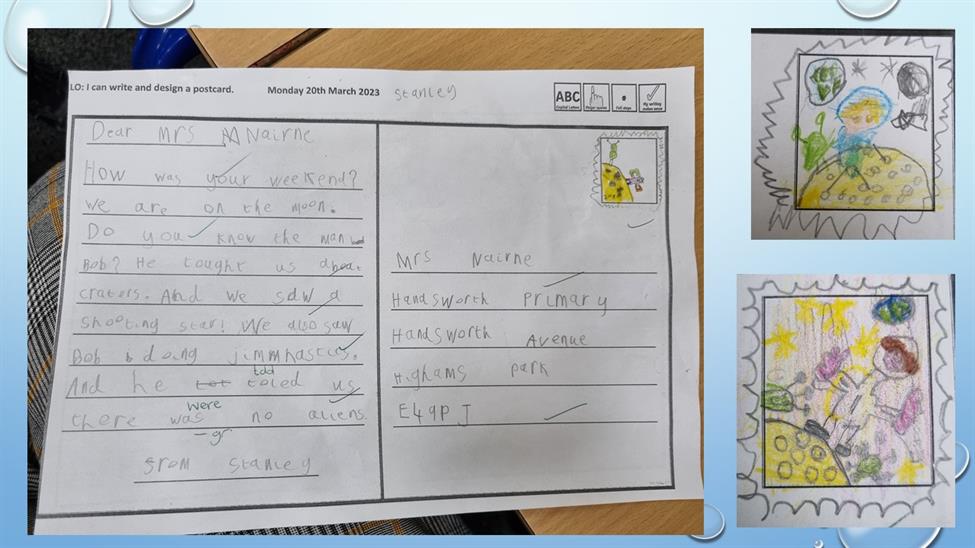 LO: I can write and design a postcard. Monday 20th March 2023 Stanley
ABC
Capital Letters
Finger spaces
Full stops
My writing makes sense
Dear Mrs Nairne
How was your weekend?
we are on the moon.
Do you know the man
Bob? He tought us about
craters. And we saw a
shooting star! We also saw
Bob doing jimmnastics.
told
And he toled us
were
there was no aliens.
gr
from Stanley
Mrs Nairne
Handsworth Primary
Handsworth Avenue
Highams park
E49PJ